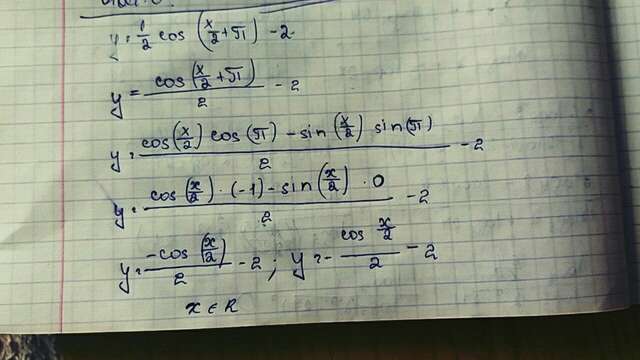 y = 1/2 cos (x/2 + π) - 2
y = cos(x/2 + π)/2 - 2
y = (cos(x/2) cos(π) - sin(x/2) sin(π))/2 - 2
y = (cos(x/2) · (-1) - sin(x/2) · 0)/2 - 2
y = -cos(x/2)/2 - 2 ; y = - cos x/2 / 2 - 2
x ∈ R